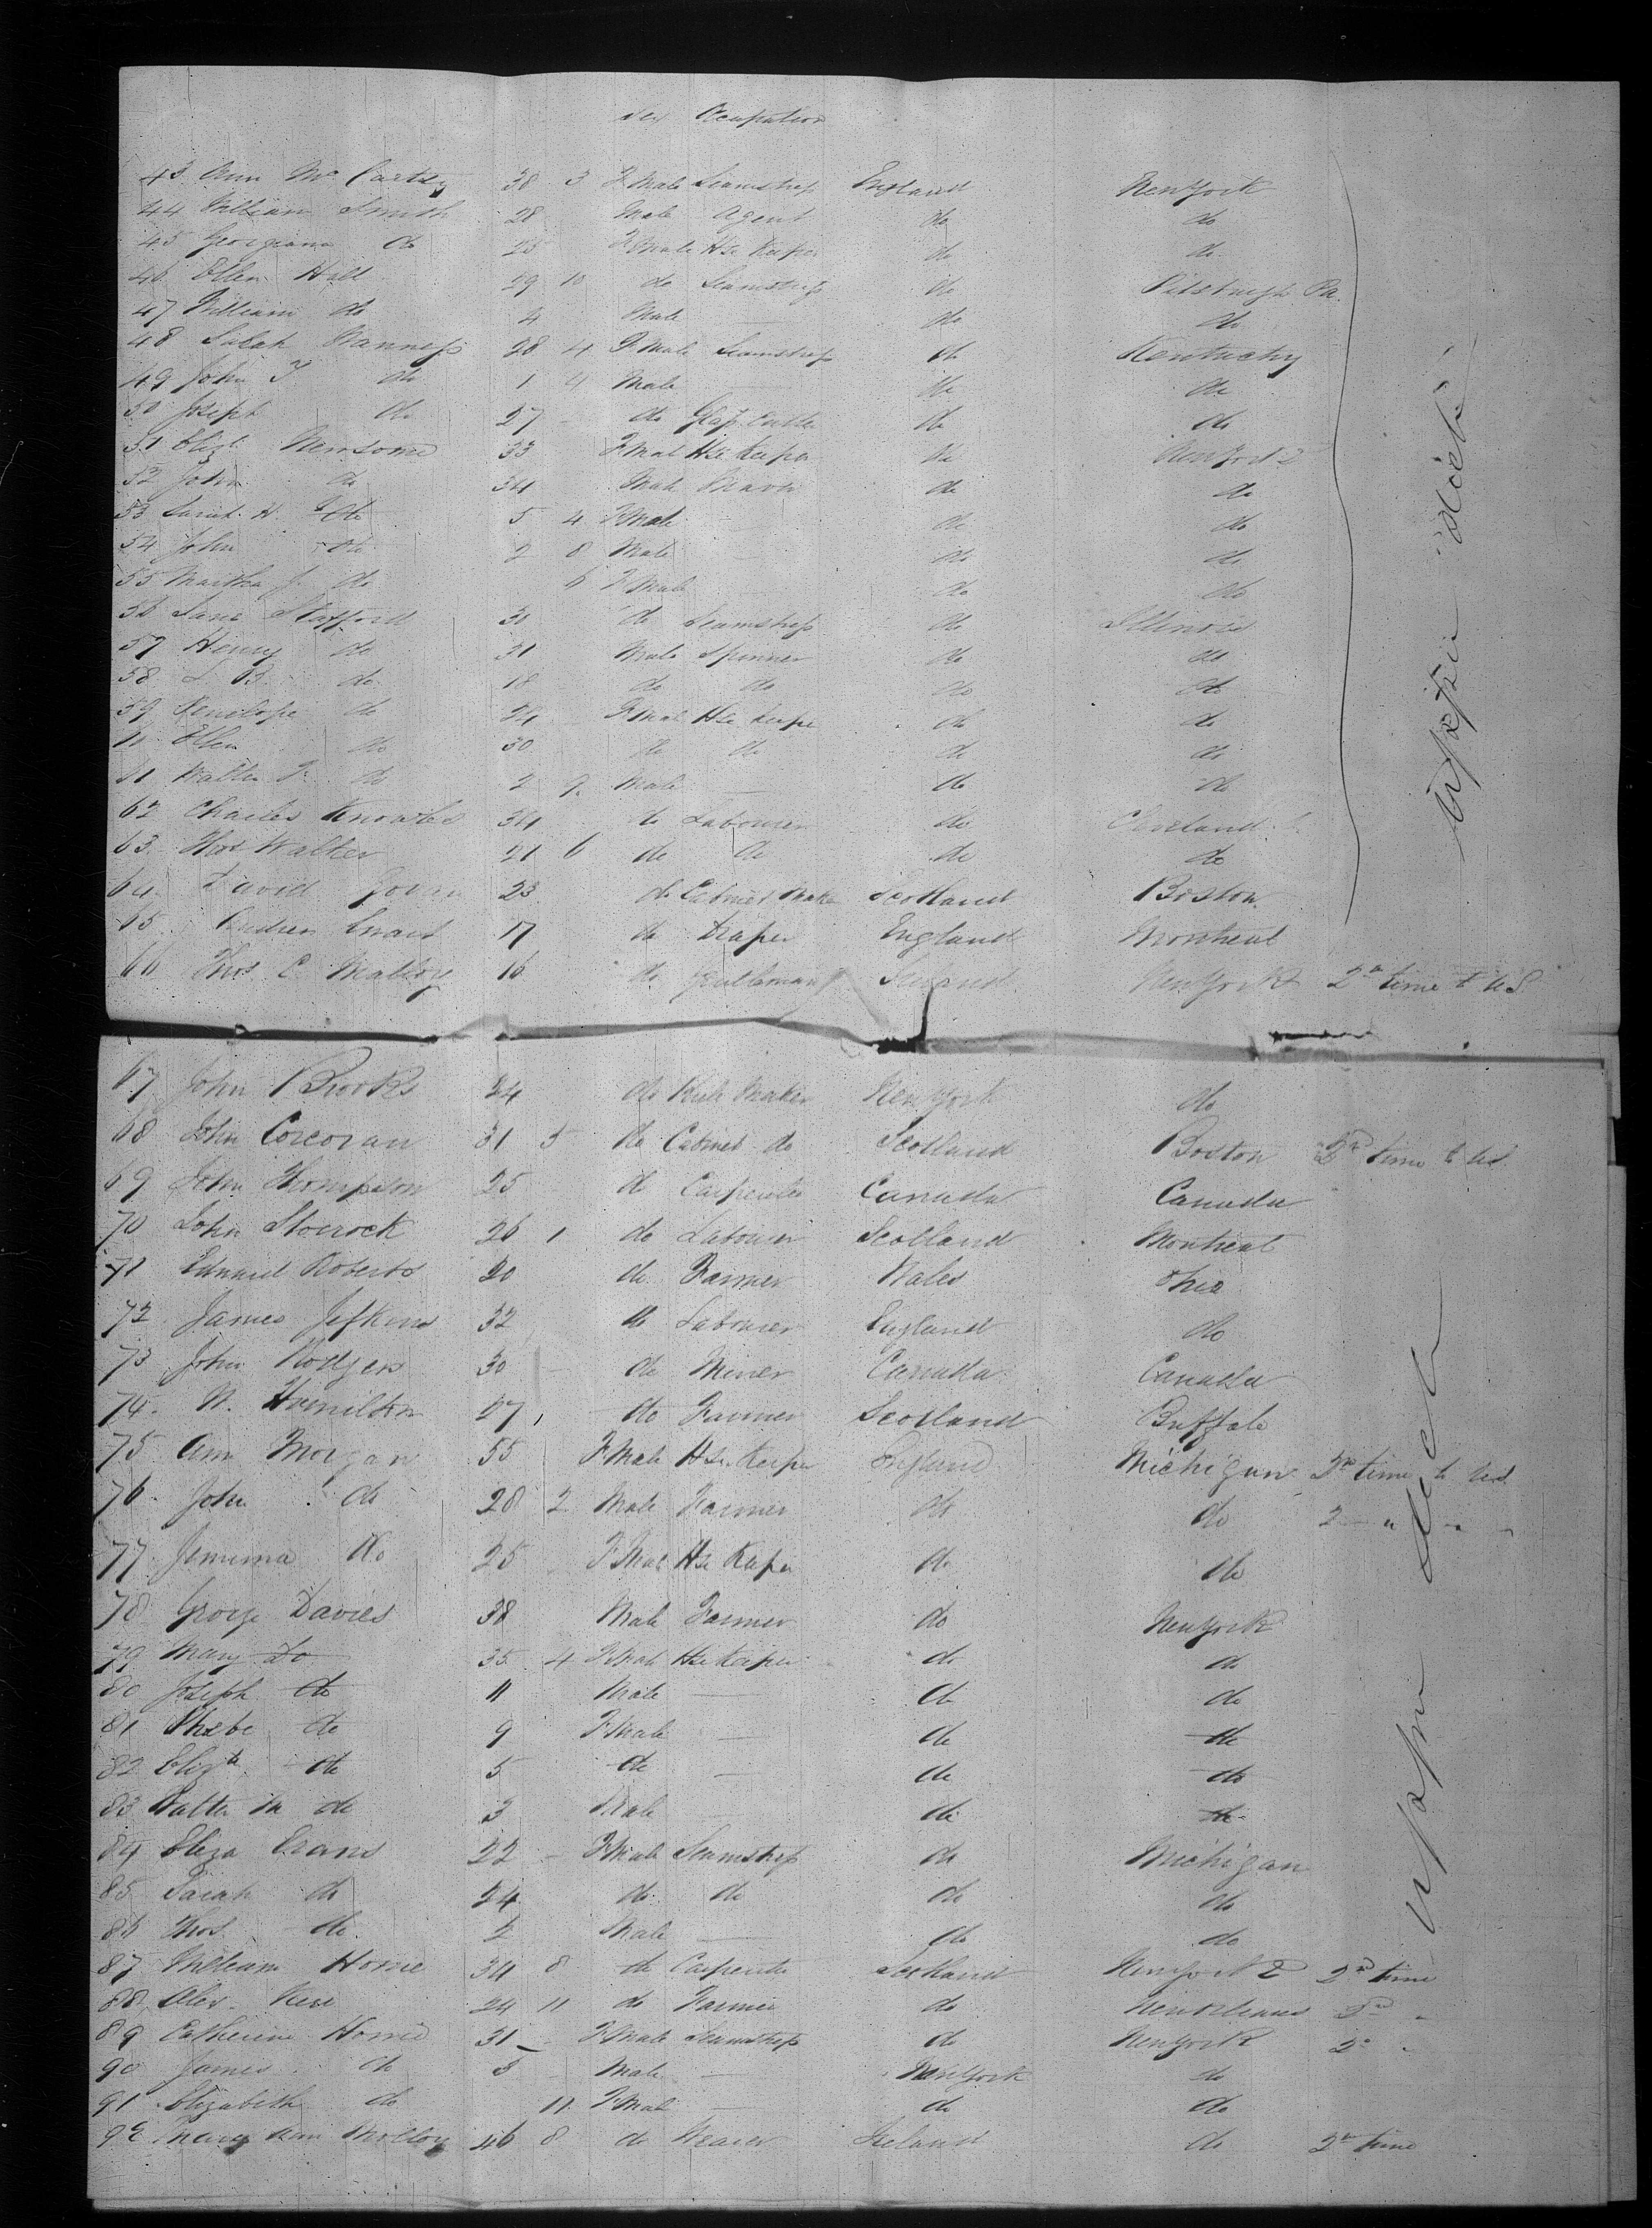 Sex Occupation
43 Ann Mc Carty 38 3 F Male Seamstress England New York
44 William Smith 28 Male Agent do do
45 Georgiana do 25 F Male Hse Keeper do do
46 Ellen Hall 29 10 do Seamstress do Pitsburgh Pa.
47 William do 4 Male — do do
48 Sarah 28 4 F Male Seamstress do Kentucky
49 John T do 1 4 Male — do do
50 Joseph do 27 - do Glass Cutter do do
51 Elizth Newsome 33 F Mal Hse Keeper do New York
52 John do 34 Male do do
53 Sarah H do 5 4 F Male — do do
54 John do 2 8 Male — do do
55 Martha J. do 6 F Male — do do
56 Jane Stafford 30 do Seamstress do Illinois
57 Henry do 31 Male Spinner do do
58 B. do 18 do do do do
59 Penelope do 24 F Mal Hse Keepe do do
60 Ellen do 30 do do do do
61 Walter do 2 9 Male — do do
62 Charles Knowles 34 do Labourer do Cleveland
63 Thos Walker 21 6 do do do do
64 David 23 do Cabinet Make Scotland Boston
65 Andrew 17 do Draper England Montreal
66 Thos C Malloy 16 do Gentleman Ireland New York 2d time to U.S.
67 John Brooks 24 do Rule Maker New York do
68 John Corcoran 31 5 do Cabinet do Scotland Boston 2d time to U.S.
69 John Thompson 25 do Carpenter Canada Canada
70 John 26 1 do Labourer Scotland Montreal
71 Edward Roberts 20 do Farmer Wales Ohio
72 James Jefkins 32 do Labourer England do
73 John Rodgers 30 do Miner Canada Canada
74 W. Hamilton 27 do Farmer Scotland Buffalo
75 Ann Morgan 55 F Male Hse Keeper England Michigan 2d time to U.S.
76 John do 28 2 Male Farmer do do 2 — " — " —
77 Jemima do 25 F Mal Hse Keeper do do
78 George Davies 38 Male Farmer do New York
79 Mary Do 35 4 F Mal Hse Keeper do do
80 Joseph do 11 Male — do do
81 Phebe do 9 F Male — do do
82 Elizth do 5 do — do do
83 Walter M do 3 Male do do
84 Eliza Evans 22 - F Male Seamstress do Michigan
85 Sarah do 24 do do do do
86 Thos do 2 Male — do do
87 William Horne 34 8 do Carpenter Scotland New York 2d time
88 Alex. 24 11 do Farmer do New Orleans 2d "
89 Catherine Horne 31 - F Male Seamstress do New York 2d "
90 James do 3 Male — New York do
91 Elizabeth do 11 F Mal — do do
92 Mary Ann Molloy 46 8 do Weaver Ireland do 2d time
Upper deck
Upper deck